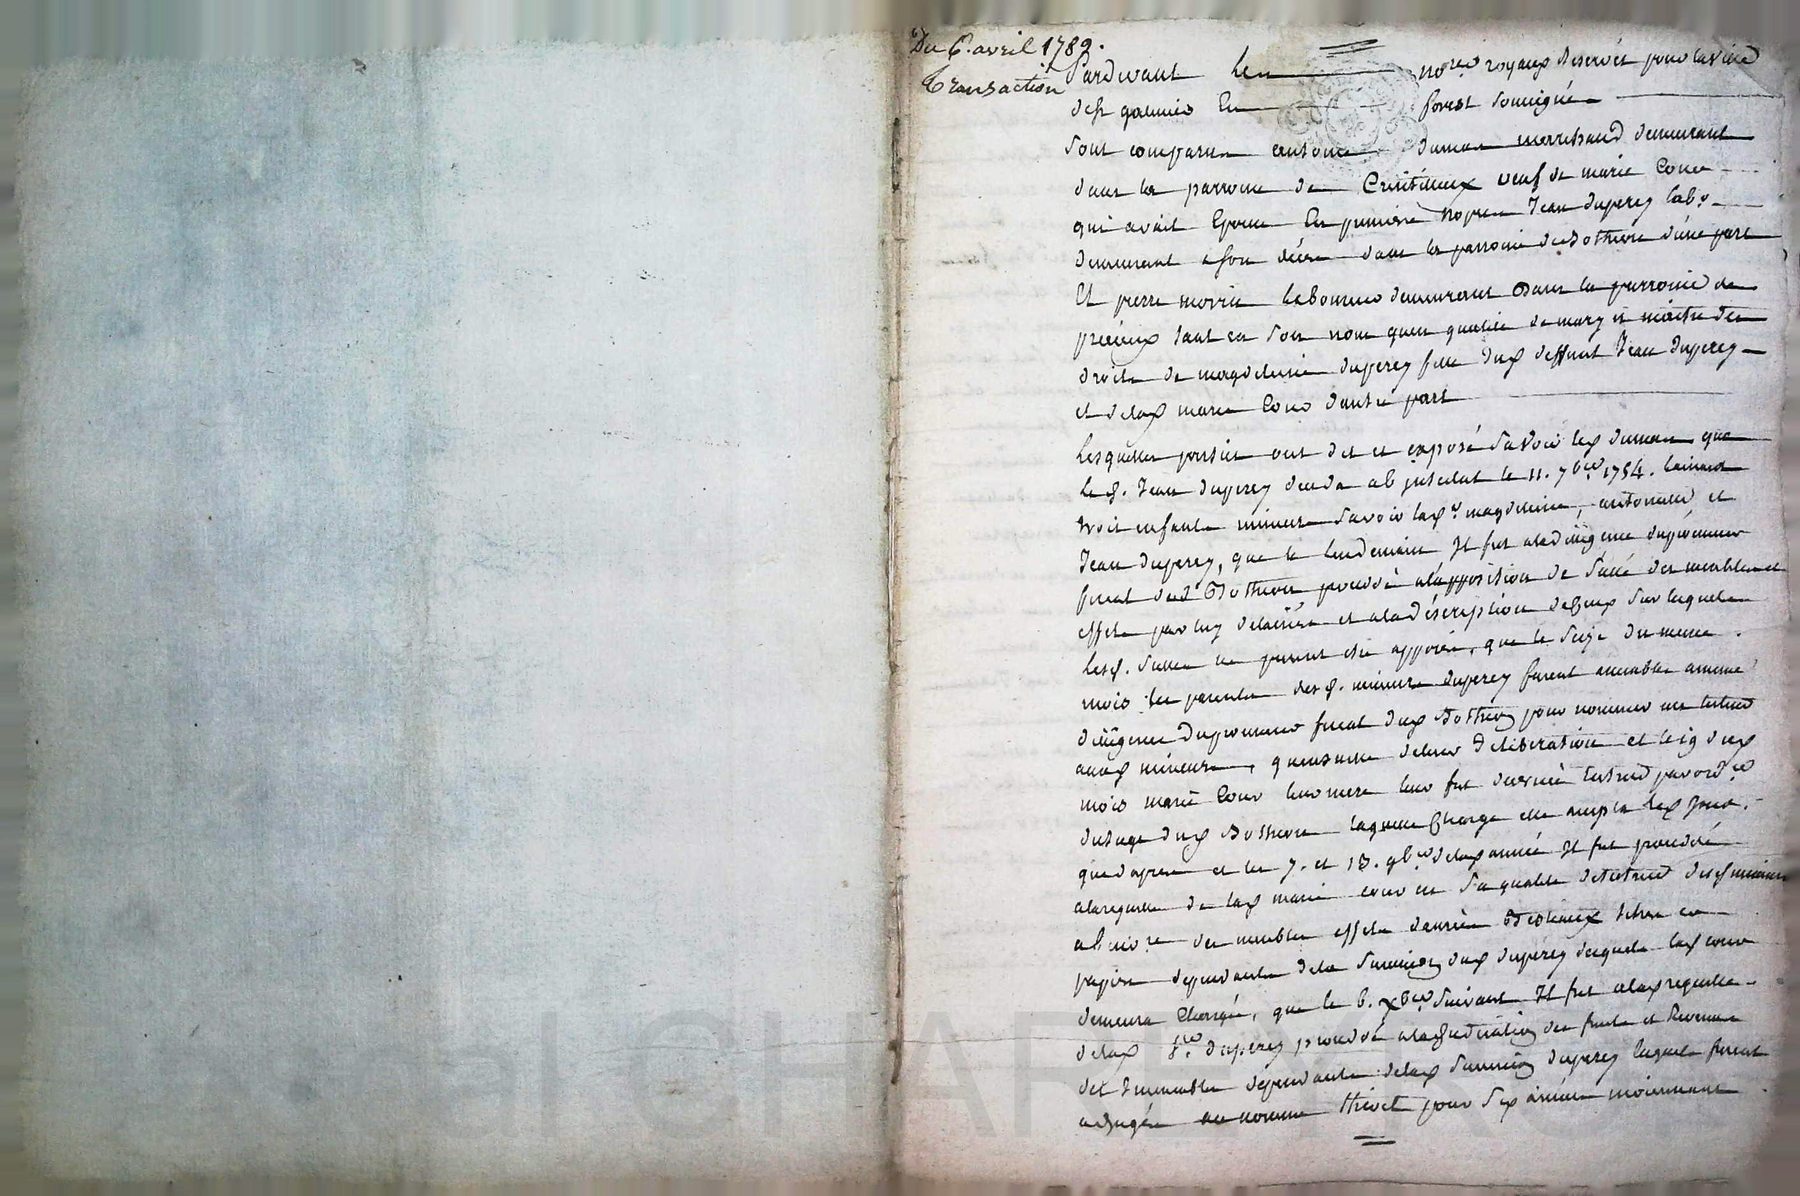 Du 6. avril 1789.
Transaction
Pardevant Les no.res royaux Reservés pour la ville
de st galmier En forest soussignés
sont comparus antoine dumas marechand demeurant
dans la parroisse de veuf de marie Couer
qui avait Epousé En premiere nopces Jean duperey lab.r
demeurant a son décès dans la parroisse de Bothéon d'une part
Et pierre morin laboureur demeurant Dans la parroisse de
precieux tant en son nom quen qualité de mary et maitre des
droits de magdeleine duperey fille dud deffunt Jean duperey
et delad marie Couer dautre part
Lesquelles parties ont dit et exposé savoir led dumas que
led. Jean duperey deceda ab jntestat le 11. 7bre 1754. laissant
trois enfants mineurs savoir lad. magdeleine, antoinette et
Jean duperey, que le lendemain Il fut a la diligence du procureur
fiscal dud Bothéon procédé a l'apposition de scellé des meubles et
effets par luy délaissés et a la déscription de ceux sur lesquels
lesd. scellés ne purent etre apposés, que le seize du meme
mois les parents desd. mineurs duperey furent assemblés a meme
diligence du procureur fiscal dud Bothéon pour nommer un tuteur
auxd mineurs, quensuite de leur déliberation et le 19 dud
mois marie Couer leur mere leur fut decernée tutrice par ord.ce
du juge dud Bothéon laquelle charge elle accepta led jour.
que d'apres et les 7. et 13. 9bre delad année Il fut procédé
a la requette de lad marie couer en sa qualité de tutrice desd mineurs
a l'inv.re des meubles effets denrées Bestiaux titres et
papiers dependants de la succession dud duperey desquels lad couer
demeura chargée, que le 6. xbre suivant Il fut a lad requette
delad v.e duperey procédé a l'adjudication des fruits et Revenus
des Immeubles dependants delad succession duperey lesquels furent
adjugés au nommé thivet pour six années moiennant